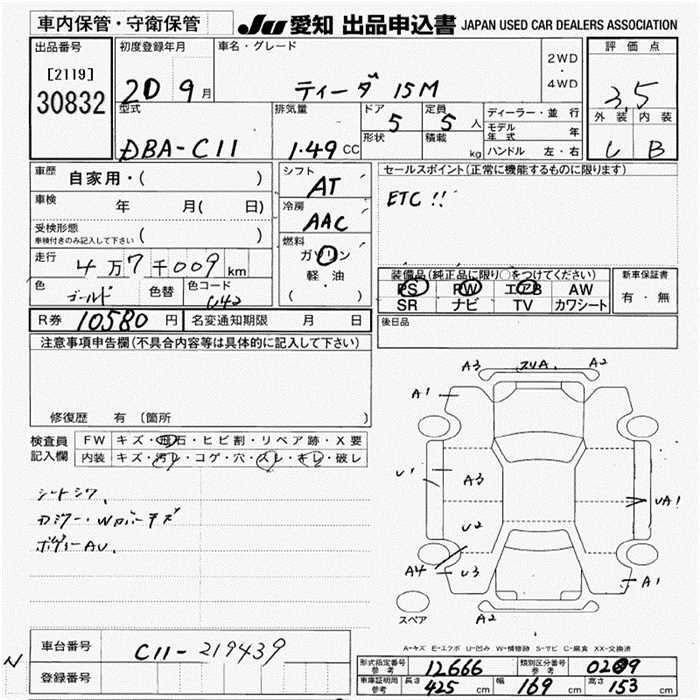 車内保管・守衛保管
JU 愛知 出品申込書 JAPAN USED CAR DEALERS ASSOCIATION
出品番号
[2119]
30832
初度登録年月
20 9月
車名・グレード
ティーダ 15M
2WD
・
4WD
評価点
3.5
外装 内装
C B
型式
DBA-C11
排気量
1.49 CC
ドア
5
形状
定員
5 人
積載
kg
ディーラー・並行
モデル年式 年
ハンドル 左・右
車歴
自家用・( )
車検
年 月( 日)
受検形態
車検付きのみ記入して下さい ( )
走行
4万7千009km
色
ゴールド
色替
色コード
C42
シフト
AT
冷房
AAC
燃料
ガソリン
軽・油
( )
セールスポイント(正常に機能するものに限ります)
ETC !!
装備品(純正品に限り○をつけてください)
PS PW エアB AW
SR ナビ TV カワシート
新車保証書
有・無
後日品
R券 10580 円
名変通知期限 月 日
注意事項申告欄(不具合内容等は具体的に記入して下さい)
修復歴 有 (箇所 )
検査員
記入欄
FW キズ・飛石・ヒビ割・リペア跡・X要
内装 キズ・汚レ・コゲ・穴・スレ・キレ・破レ
シートシワ、
ボディーAU、
A3 2UA. A2
A1
U1
A3
U2
UA1
A4
U3
A1
A2
スペア
A-キズ E-エクボ U-凹み W-補修跡 S-サビ C-腐食 XX-交換済
車台番号
C11-219439
登録番号
N
形式指定番号
参考
12666
類別区分番号
参考
0209
車庫証明用
参考
長さ 425 cm 幅 169 cm 高さ 153 cm